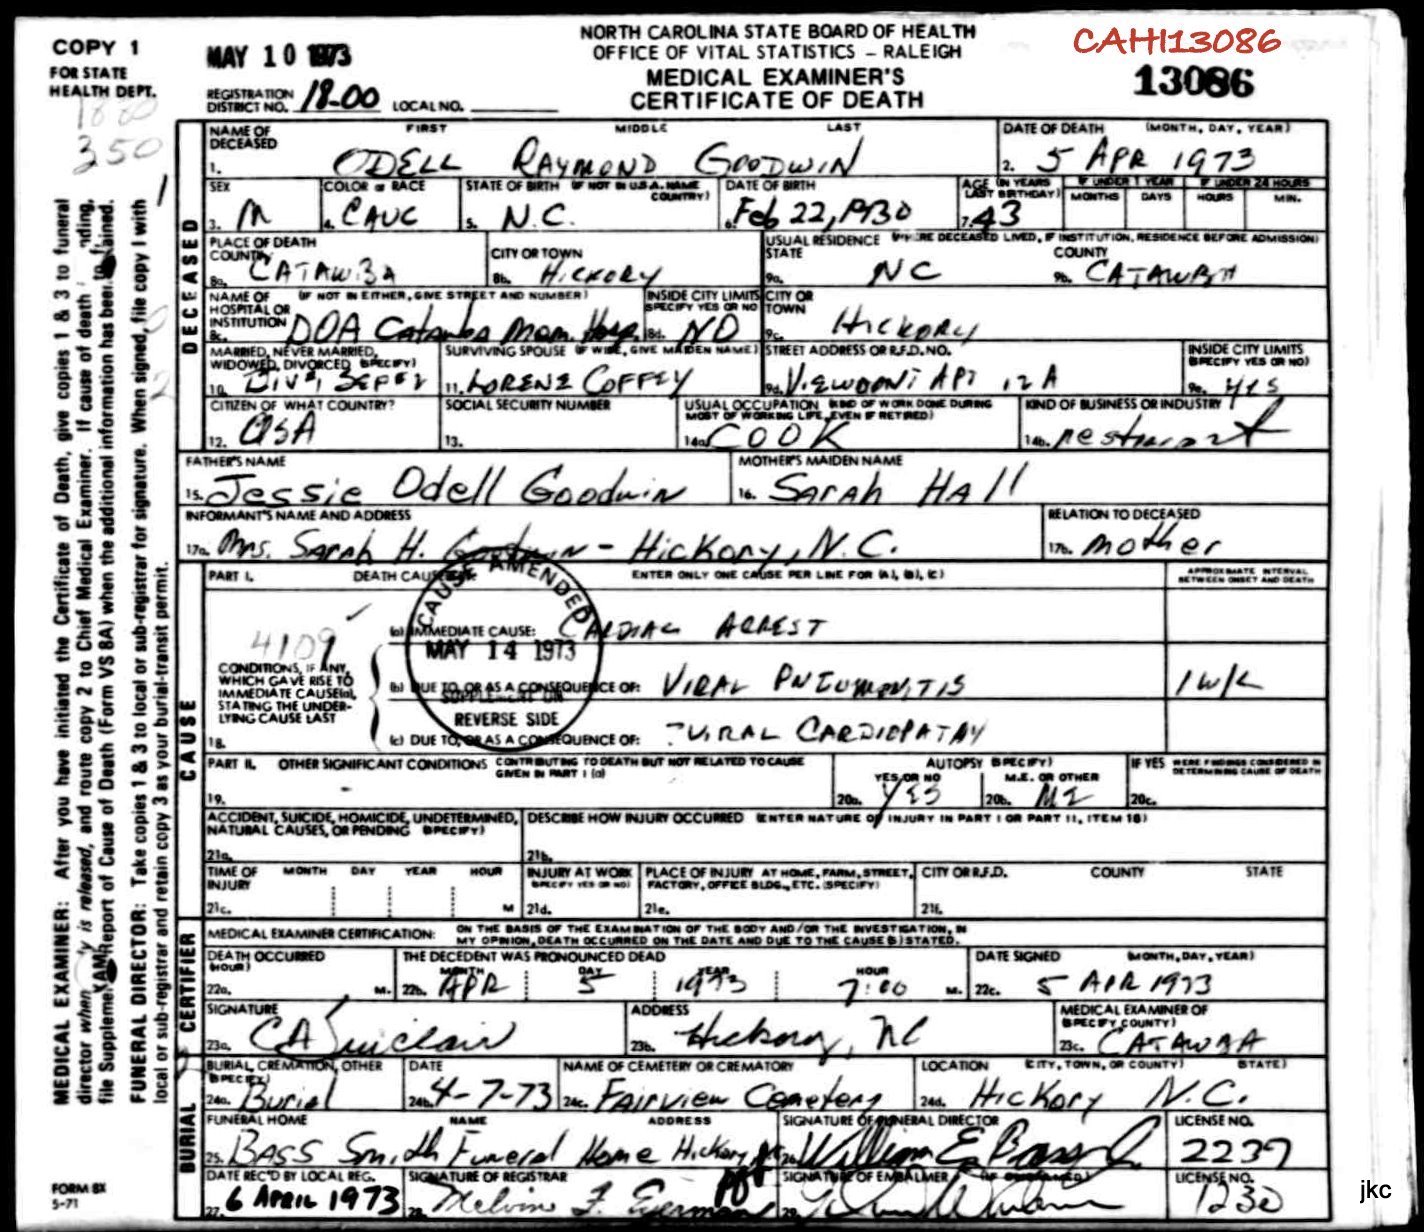 COPY 1
FOR STATE
HEALTH DEPT.
1880
350
MAY 10 1973
NORTH CAROLINA STATE BOARD OF HEALTH
OFFICE OF VITAL STATISTICS – RALEIGH
MEDICAL EXAMINER'S
CERTIFICATE OF DEATH
CAHI13086
13086
REGISTRATION
DISTRICT NO. 18-00 LOCAL NO.
NAME OF DECEASED FIRST MIDDLE LAST
1. ODELL RAYMOND GOODWIN
DATE OF DEATH (MONTH, DAY, YEAR)
2. 5 APR 1973
SEX
3. M
COLOR or RACE
4. CAUC
STATE OF BIRTH (IF NOT IN U.S.A. NAME COUNTRY)
5. N.C.
DATE OF BIRTH
6. Feb 22, 1930
AGE (IN YEARS LAST BIRTHDAY)
7. 43
IF UNDER 1 YEAR
MONTHS DAYS
IF UNDER 24 HOURS
HOURS MIN.
DECEASED
PLACE OF DEATH
COUNTY
8a. CATAWBA
CITY OR TOWN
8b. HICKORY
USUAL RESIDENCE (WHERE DECEASED LIVED, IF INSTITUTION, RESIDENCE BEFORE ADMISSION)
STATE
9a. NC
COUNTY
9b. CATAWBA
NAME OF HOSPITAL OR INSTITUTION (IF NOT IN EITHER, GIVE STREET AND NUMBER)
8c. DOA Catawba Mem. Hosp.
INSIDE CITY LIMITS
SPECIFY YES OR NO
8d. NO
CITY OR TOWN
9c. HICKORY
MARRIED, NEVER MARRIED, WIDOWED, DIVORCED (SPECIFY)
10.
SURVIVING SPOUSE (IF WIFE, GIVE MAIDEN NAME)
11. LORENE COFFEY
STREET ADDRESS OR R.F.D. NO.
9d. VIEWMONT APT 12A
INSIDE CITY LIMITS
(SPECIFY YES OR NO)
9e. YES
CITIZEN OF WHAT COUNTRY?
12. USA
SOCIAL SECURITY NUMBER
13.
USUAL OCCUPATION (KIND OF WORK DONE DURING MOST OF WORKING LIFE, EVEN IF RETIRED)
14a. COOK
KIND OF BUSINESS OR INDUSTRY
14b. restaurant
FATHER'S NAME
15. Jessie Odell Goodwin
MOTHER'S MAIDEN NAME
16. SARAH HALL
INFORMANT'S NAME AND ADDRESS
17a. Mrs. Sarah H. Goodwin – Hickory, N.C.
RELATION TO DECEASED
17b. mother
CAUSE
PART I. DEATH CAUSED BY: ENTER ONLY ONE CAUSE PER LINE FOR (A), (B), (C)
APPROXIMATE INTERVAL
BETWEEN ONSET AND DEATH
CAUSE AMENDED
MAY 14 1973
SUPPLEMENT ON
REVERSE SIDE
4109
CONDITIONS, IF ANY,
WHICH GAVE RISE TO
IMMEDIATE CAUSE(a),
STATING THE UNDER-
LYING CAUSE LAST
18.
(a) IMMEDIATE CAUSE: CARDIAC ARREST
(b) DUE TO, OR AS A CONSEQUENCE OF: VIRAL PNEUMONITIS 1 WK
(c) DUE TO, OR AS A CONSEQUENCE OF: ? VIRAL CARDIOPATHY
PART II. OTHER SIGNIFICANT CONDITIONS CONTRIBUTING TO DEATH BUT NOT RELATED TO CAUSE GIVEN IN PART I (a)
19.
AUTOPSY (SPECIFY)
YES OR NO
20a. YES
M.E. OR OTHER
20b. ME
IF YES WERE FINDINGS CONSIDERED IN DETERMINING CAUSE OF DEATH
20c.
ACCIDENT, SUICIDE, HOMICIDE, UNDETERMINED,
NATURAL CAUSES, OR PENDING (SPECIFY)
21a.
DESCRIBE HOW INJURY OCCURRED (ENTER NATURE OF INJURY IN PART I OR PART II, ITEM 18)
21b.
TIME OF INJURY MONTH DAY YEAR HOUR
21c. M
INJURY AT WORK
(SPECIFY YES OR NO)
21d.
PLACE OF INJURY AT HOME, FARM, STREET,
FACTORY, OFFICE BLDG., ETC. (SPECIFY)
21e.
CITY OR R.F.D. COUNTY STATE
21f.
CERTIFIER
MEDICAL EXAMINER CERTIFICATION: ON THE BASIS OF THE EXAMINATION OF THE BODY AND/OR THE INVESTIGATION, IN
MY OPINION, DEATH OCCURRED ON THE DATE AND DUE TO THE CAUSE(S) STATED.
DEATH OCCURRED
(HOUR)
22a. M.
THE DECEDENT WAS PRONOUNCED DEAD
MONTH DAY YEAR HOUR
22b. APR 5 1973 7:00 M.
DATE SIGNED (MONTH, DAY, YEAR)
22c. 5 APR 1973
SIGNATURE
23a. CA Sinclair
ADDRESS
23b. Hickory, NC
MEDICAL EXAMINER OF
(SPECIFY COUNTY)
23c. CATAWBA
BURIAL
BURIAL, CREMATION, OTHER
(SPECIFY)
24a. Burial
DATE
24b. 4-7-73
NAME OF CEMETERY OR CREMATORY
24c. FAIRVIEW Cemetery
LOCATION (CITY, TOWN, OR COUNTY) (STATE)
24d. Hickory N.C.
FUNERAL HOME NAME ADDRESS
25. BASS Smith Funeral Home Hickory
SIGNATURE OF FUNERAL DIRECTOR
26. William E. Bass
LICENSE NO.
2237
DATE REC'D BY LOCAL REG.
27. 6 APRIL 1973
SIGNATURE OF REGISTRAR
28. Melvine F.
SIGNATURE OF EMBALMER (IF EMBALMED)
29.
LICENSE NO.
1230
MEDICAL EXAMINER: After you have initiated the Certificate of Death, give copies 1 & 3 to funeral
director when body is released, and route copy 2 to Chief Medical Examiner. If cause of death pending,
file Supplemental Report of Cause of Death (Form VS 8A) when the additional information has been obtained.
FUNERAL DIRECTOR: Take copies 1 & 3 to local or sub-registrar for signature. When signed, file copy 1 with
local or sub-registrar and retain copy 3 as your burial-transit permit.
FORM 8X
5-71
jkc